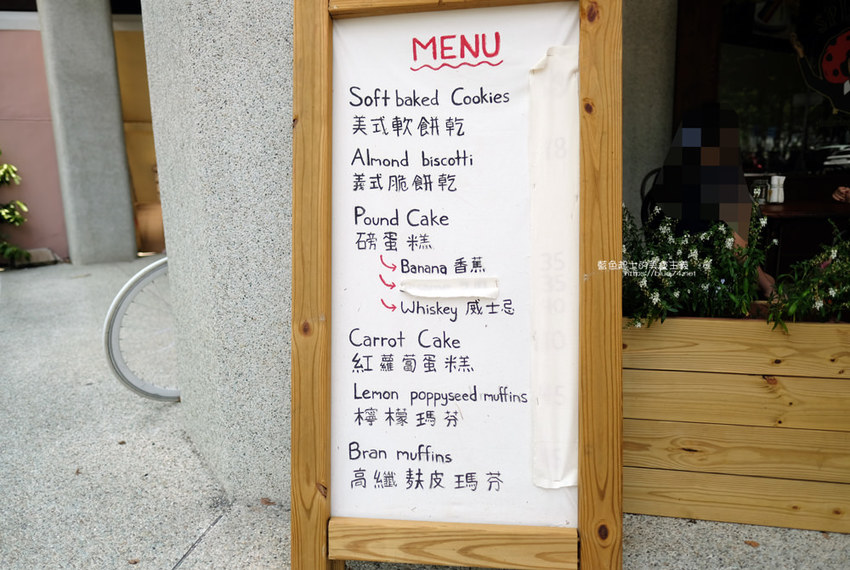 MENU
Soft baked Cookies
美式軟餅乾
Almond biscotti
義式脆餅乾
Pound Cake
磅蛋糕
Banana 香蕉
Whiskey 威士忌
Carrot Cake
紅蘿蔔蛋糕
Lemon poppyseed muffins
檸檬瑪芬
Bran muffins
高纖麩皮瑪芬
https://blue74.net